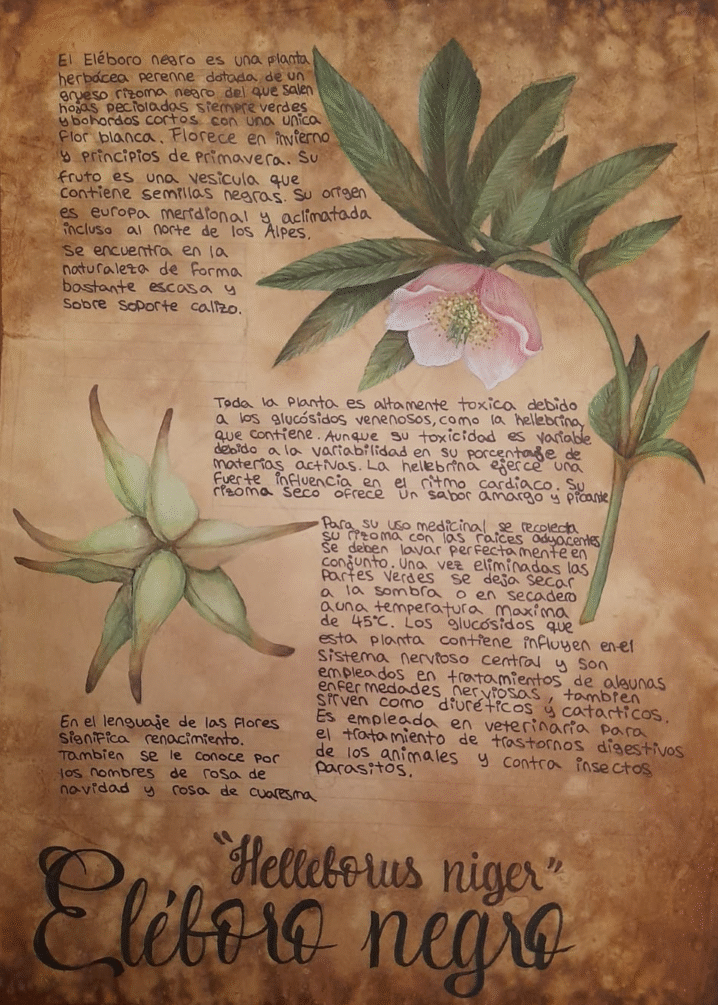 El Eléboro negro es una planta
herbácea perenne dotada de un
grueso rizoma negro del que salen
hojas pecioladas siempre verdes
y bohordos cortos con una unica
flor blanca. Florece en invierno
y principios de primavera. Su
fruto es una vesicula que
contiene semillas negras. Su origen
es europa meridional y aclimatada
incluso al norte de los Alpes.
Se encuentra en la
naturaleza de forma
bastante escasa y
sobre soporte calizo.
Toda la planta es altamente toxica debido
a los glucósidos venenosos, como la hellebrina,
que contiene. Aunque su toxicidad es variable
debido a la variabilidad en su porcentaje de
materias activas. La hellebrina ejerce una
fuerte influencia en el ritmo cardiaco. Su
rizoma seco ofrece un sabor amargo y picante
Para su uso medicinal se recolecta
su rizoma con las raices adyacentes
se deben lavar perfectamente en
conjunto. Una vez eliminadas las
partes verdes se deja secar
a la sombra o en secadero
a una temperatura maxima
de 45°C. Los glucósidos que
esta planta contiene influyen en el
sistema nervioso central y son
empleados en tratamientos de algunas
enfermedades nerviosas, tambien
sirven como diuréticos y catarticos.
Es empleada en veterinaria para
el tratamiento de trastornos digestivos
de los animales y contra insectos
parasitos.
En el lenguaje de las flores
significa renacimiento.
Tambien se le conoce por
los nombres de rosa de
navidad y rosa de cuaresma
"Helleborus niger"
Eléboro negro